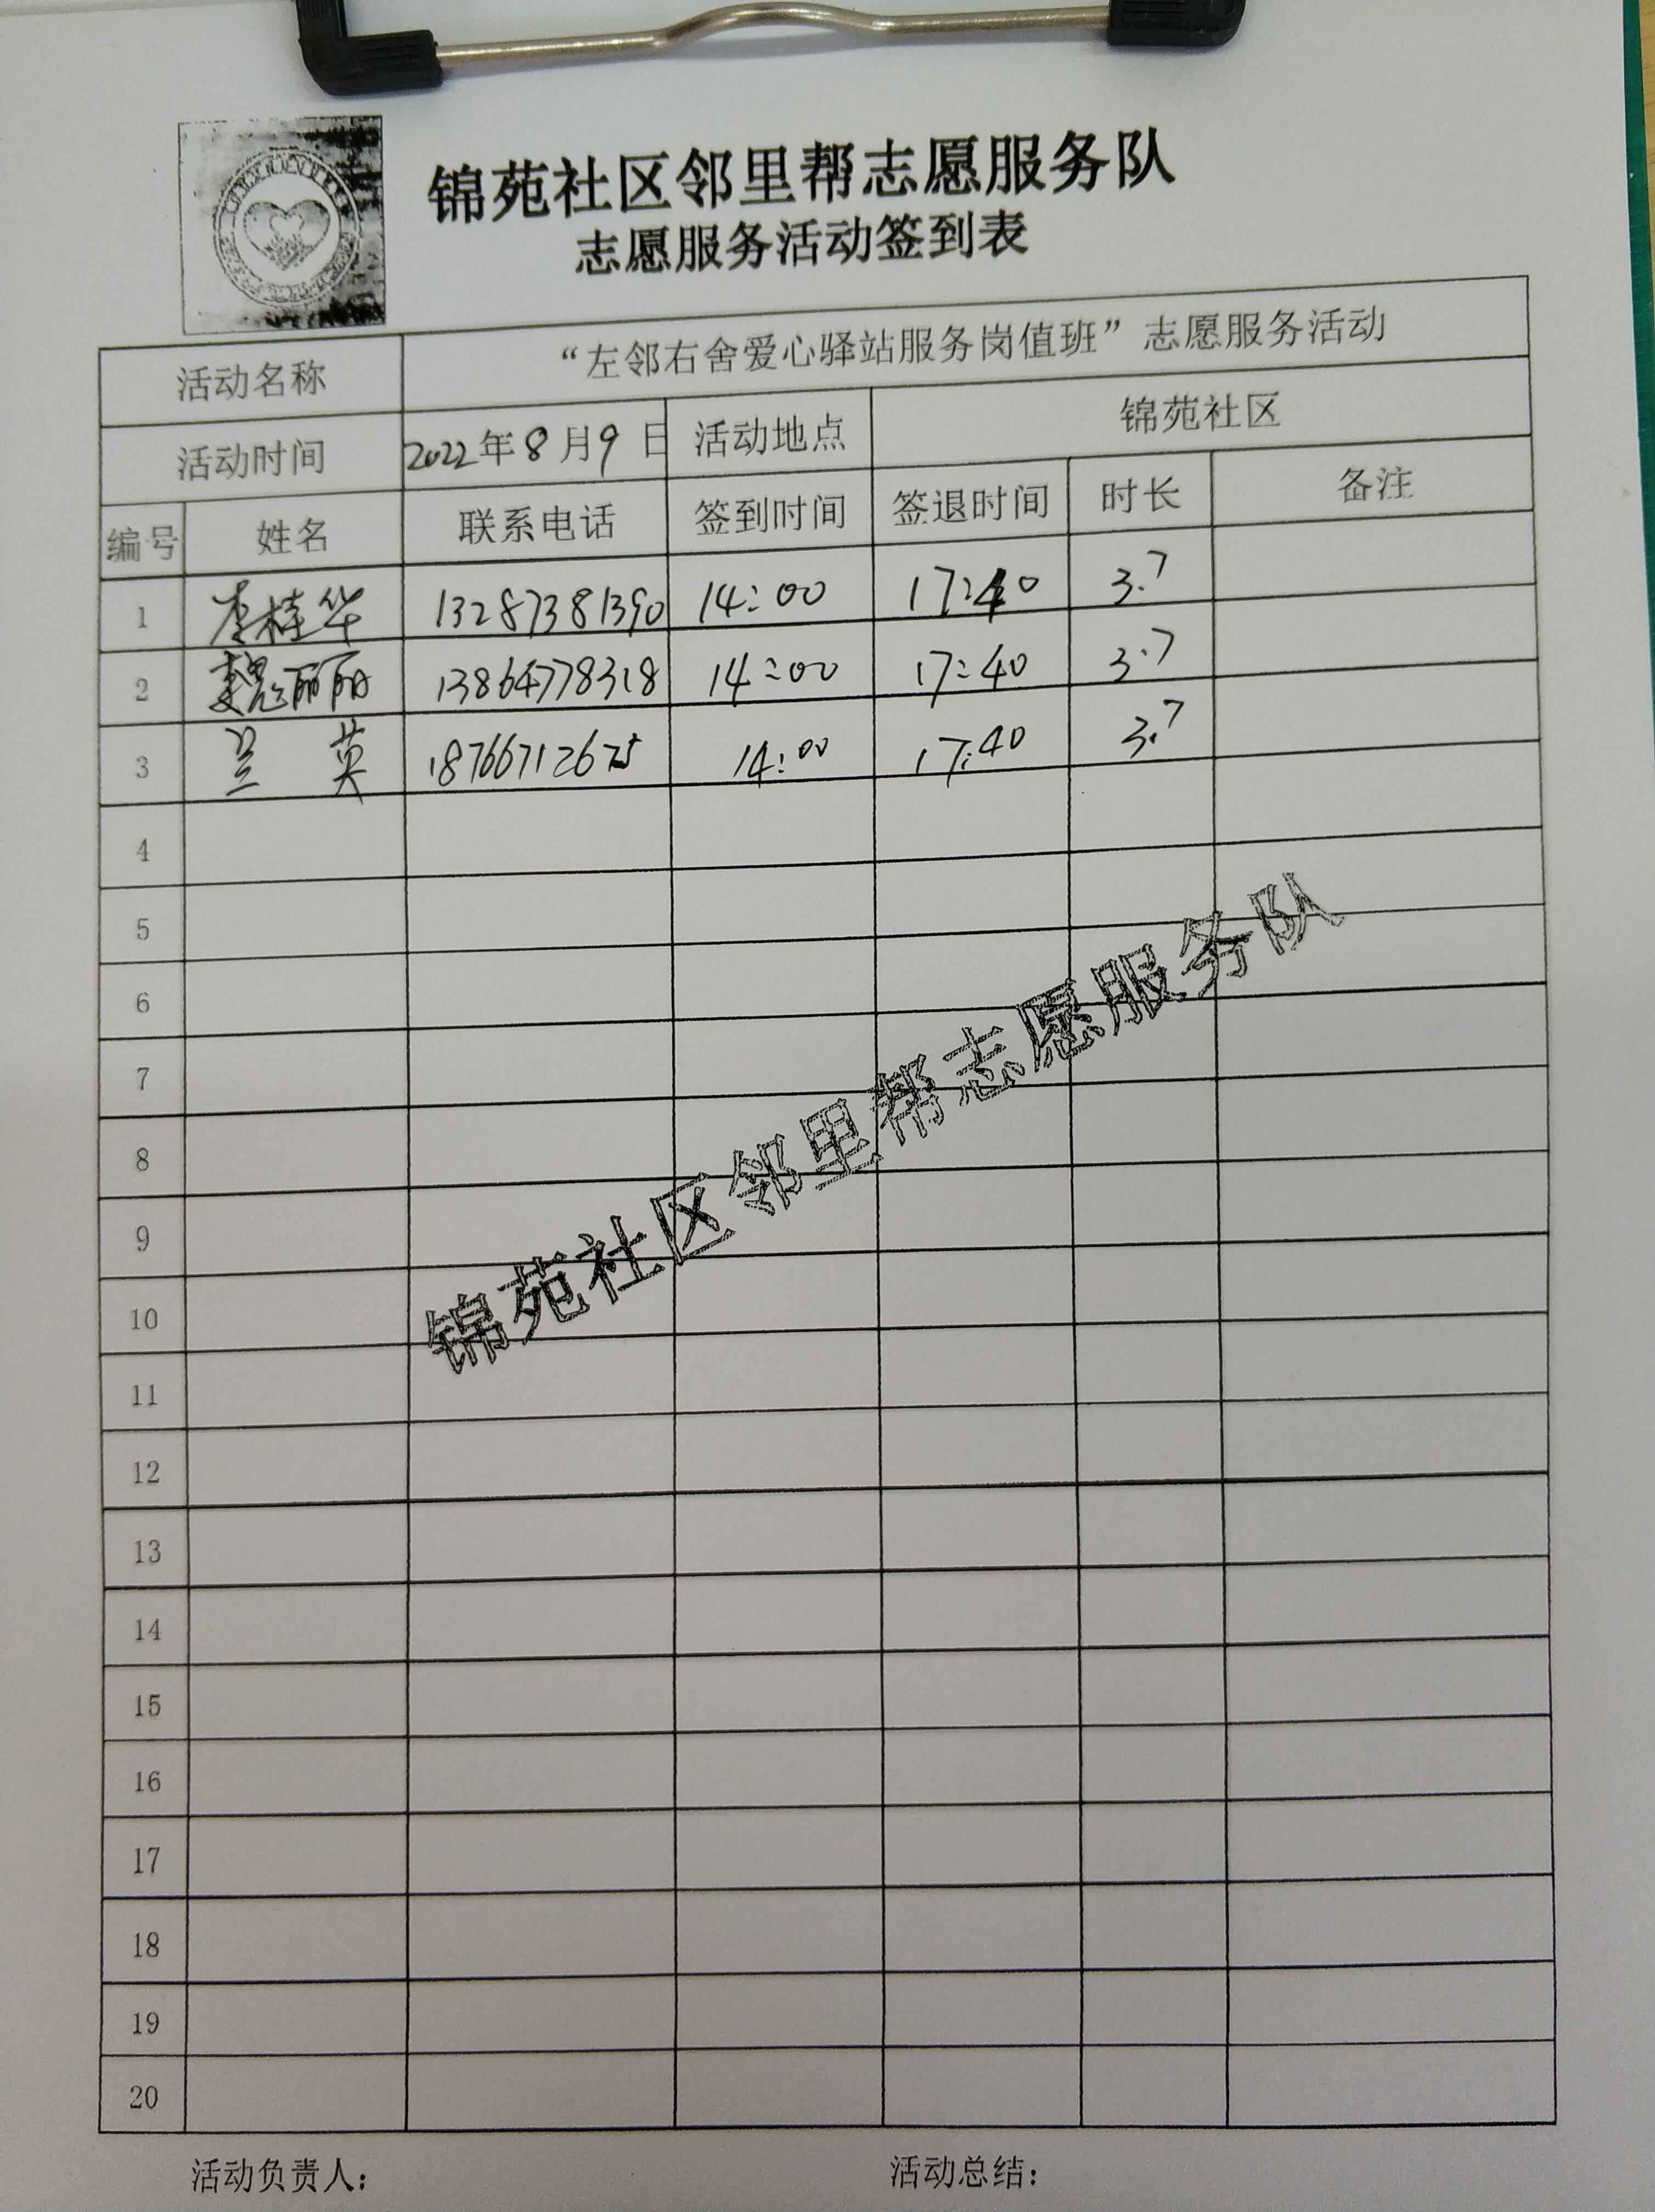 锦苑社区邻里帮志愿服务队
志愿服务活动签到表
活动名称 “左邻右舍爱心驿站服务岗值班”志愿服务活动
活动时间 2022年8月9日 活动地点 锦苑社区
编号 姓名 联系电话 签到时间 签退时间 时长 备注
1 李桂华 13287381390 14:00 17:40 3.7
2 魏丽丽 13864778318 14:00 17:40 3.7
3 兰英 18766712675 14:00 17:40 3.7
4
5
6
7
8
9
10
11
12
13
14
15
16
17
18
19
20
锦苑社区邻里帮志愿服务队
活动负责人: 活动总结: